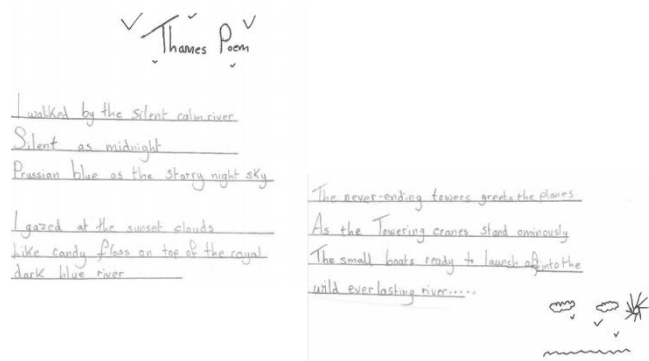 Thames Poem
I walked by the silent calm river
Silent as midnight
Prussian blue as the starry night sky
I gazed at the sunset clouds
Like candy floss on top of the royal
dark blue river
The never-ending towers greets the planes
As the Towering cranes stand ominously
The small boats ready to launch off into the
wild ever lasting river.....